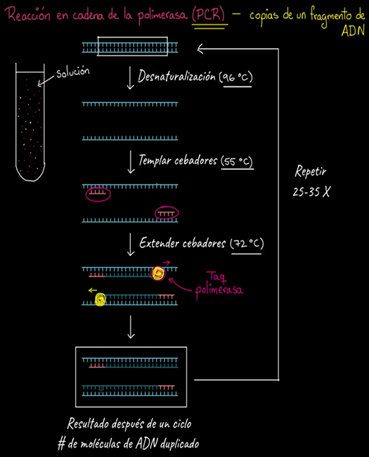 Reacción en cadena de la polimerasa (PCR) — copias de un fragmento de
ADN
Solución
Desnaturalización (96 °C)
Templar cebadores (55 °C)
Repetir
25-35 X
Extender cebadores (72 °C)
Taq
polimerasa
Resultado después de un ciclo
# de moléculas de ADN duplicado